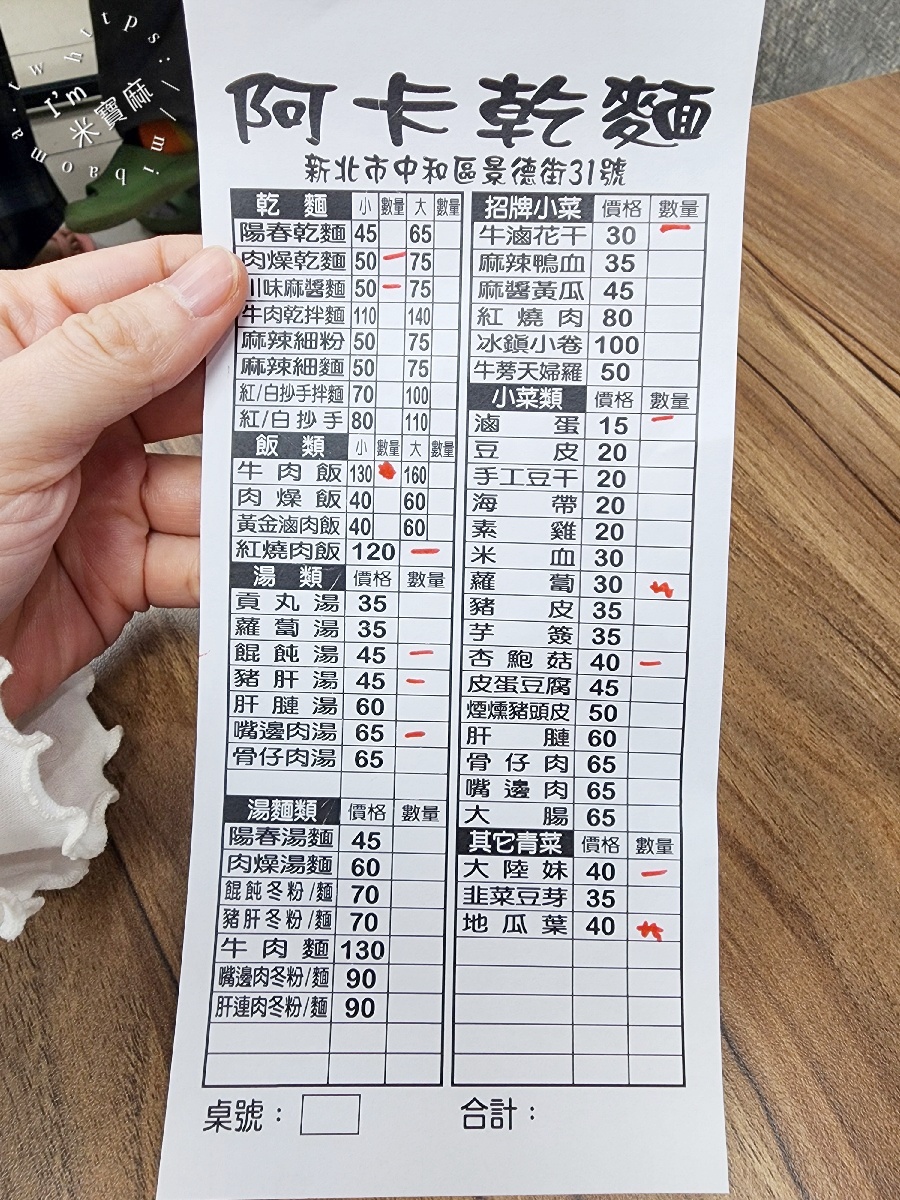 https://mibaoma.tw
I'm
米寶麻
阿卡乾麵
新北市中和區景德街31號
乾麵 小 數量 大 數量
陽春乾麵 45 65
肉燥乾麵 50 一 75
川味麻醬麵 50 一 75
牛肉乾拌麵 110 140
麻辣細粉 50 75
麻辣細麵 50 75
紅/白抄手拌麵 70 100
紅/白抄手 80 110
飯類 小 數量 大 數量
牛肉飯 130 160
肉燥飯 40 60
黃金滷肉飯 40 60
紅燒肉飯 120 一
湯類 價格 數量
貢丸湯 35
蘿蔔湯 35
餛飩湯 45 一
豬肝湯 45 一
肝腱湯 60
嘴邊肉湯 65 一
骨仔肉湯 65
湯麵類 價格 數量
陽春湯麵 45
肉燥湯麵 60
餛飩冬粉/麵 70
豬肝冬粉/麵 70
牛肉麵 130
嘴邊肉冬粉/麵 90
肝連肉冬粉/麵 90
桌號：
招牌小菜 價格 數量
牛滷花干 30 一
麻辣鴨血 35
麻醬黃瓜 45
紅燒肉 80
冰鎮小卷 100
牛蒡天婦羅 50
小菜類 價格 數量
滷蛋 15 一
豆皮 20
手工豆干 20
海帶 20
素雞 20
米血 30
蘿蔔 30
豬皮 35
芋簽 35
杏鮑菇 40 一
皮蛋豆腐 45
煙燻豬頭皮 50
肝腱 60
骨仔肉 65
嘴邊肉 65
大腸 65
其它青菜 價格 數量
大陸妹 40 一
韭菜豆芽 35
地瓜葉 40
合計：